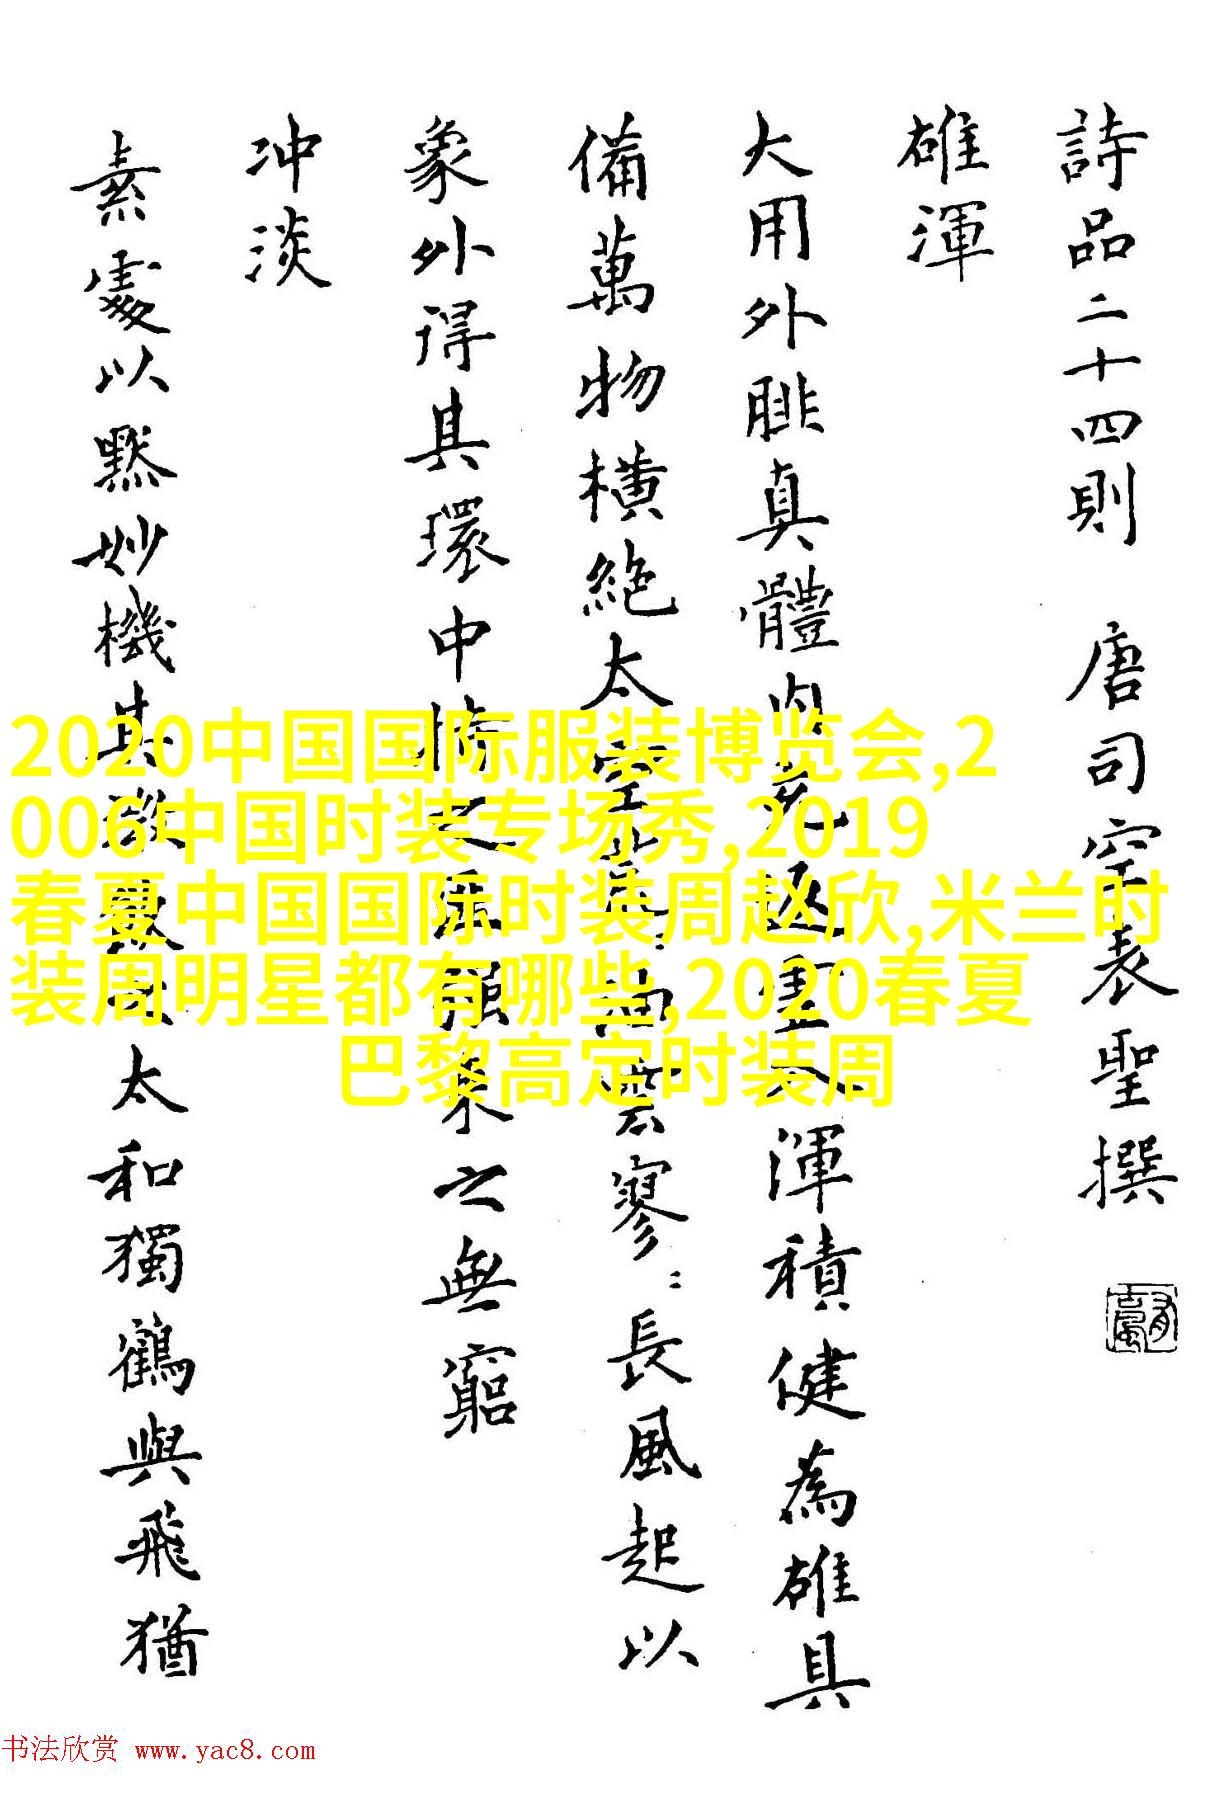 詩品二十四則 唐司空表聖撰
雄渾
大用外腓真體内充返虛入渾積健為雄具
備萬物橫絕太空荒:油雲寥:長風超以
象外得其環中持之匪强來之無窮
冲淡
素處以默妙機其微飲之太和獨鶴與飛猶
2020中国国际服装博览会,2
006中国时装专场秀,2019
春夏中国国际时装周赵欣,米兰时
装周明星都有哪些,2020春夏
巴黎高定时装周
书法欣赏 www.yac8.com